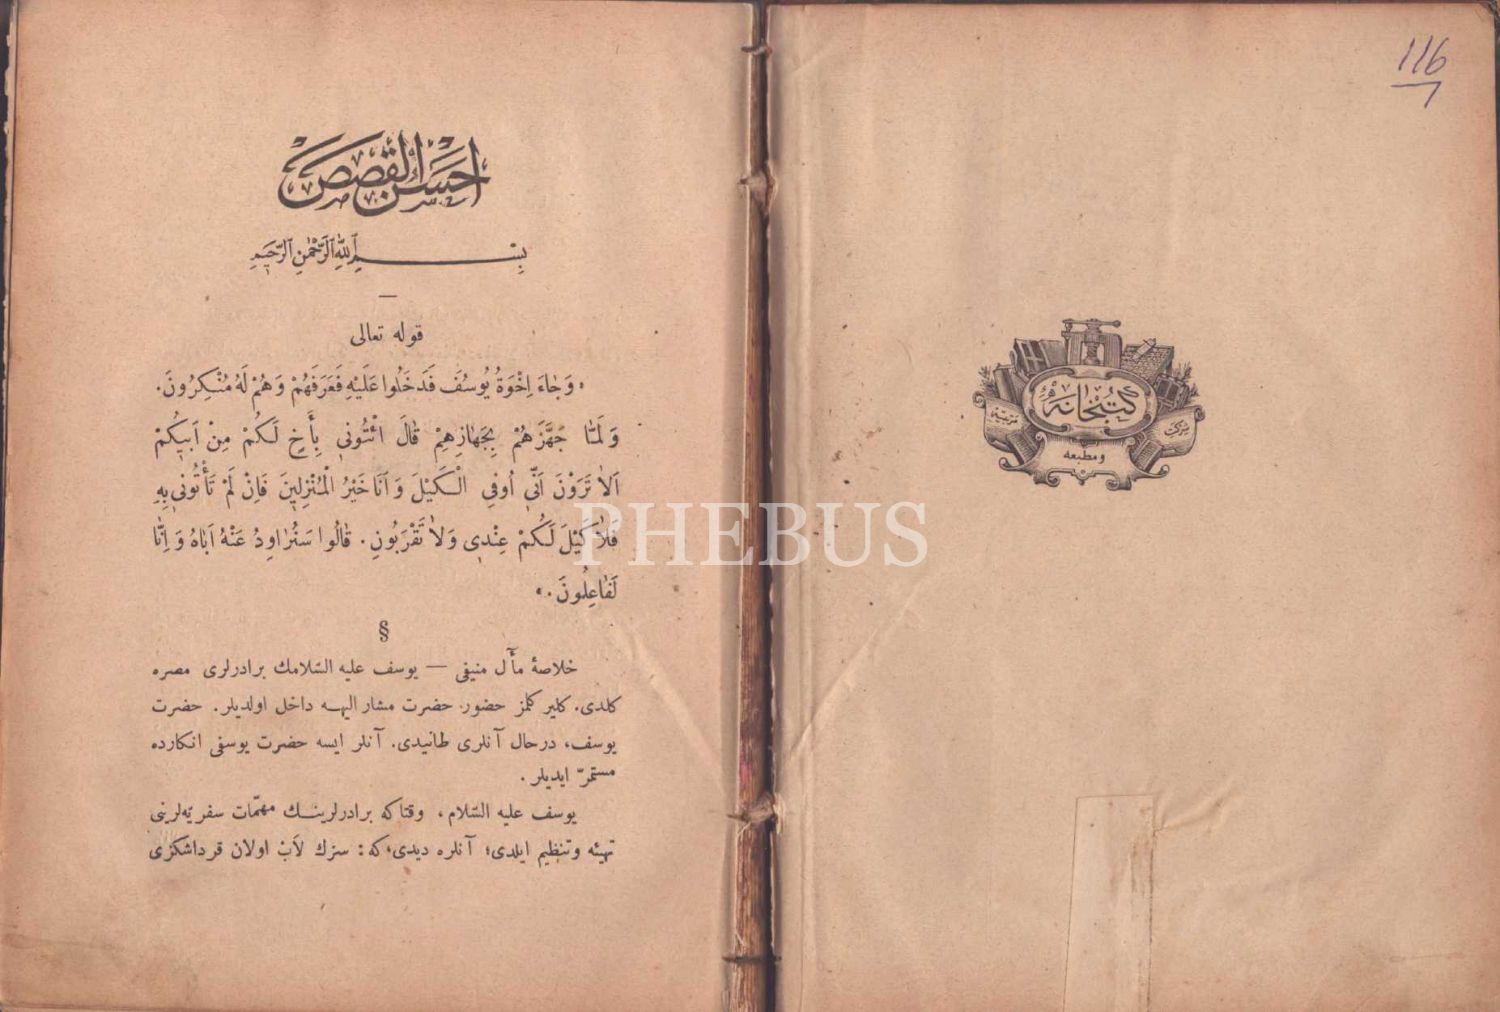 116
7
كتبخانه
شركت
مرتبيه
ومطبعه
احسن القصص
بِسْمِ اللهِ الرَّحْمٰنِ الرَّحِيمِ
قوله تعالى
«وَجَاءَ اِخْوَةُ يُوسُفَ فَدَخَلُوا عَلَيْهِ فَعَرَفَهُمْ وَهُمْ لَهُ مُنْكِرُونَ.
وَلَمَّا جَهَّزَهُمْ بِجَهَازِهِمْ قَالَ ائْتُونِي بِأَخٍ لَكُمْ مِنْ اَبِيكُمْ
اَلَا تَرَوْنَ اَنِّي اُوفِي الْكَيْلَ وَاَنَا خَيْرُ الْمُنْزِلِينَ فَاِنْ لَمْ تَأْتُونِي بِهِ
فَلَا كَيْلَ لَكُمْ عِنْدِي وَلَا تَقْرَبُونِ. قَالُوا سَنُرَاوِدُ عَنْهُ اَبَاهُ وَاِنَّا
لَفَاعِلُونَ.»
§
خلاصهٔ مآل منيفى — يوسف عليه السّلامك برادرلرى مصره
كلدى. كلير كلمز حضور حضرت مشار اليهه داخل اولديلر. حضرت
يوسف، درحال آنلرى طانيدى. آنلر ايسه حضرت يوسفى انكارده
مستمرّ ايديلر.
يوسف عليه السّلام، وقتاكه برادرلرينك مهمّات سفريّه‌لرينى
تهيئه وتنظيم ايلدى؛ آنلره ديدى، كه: سزك لاَبْ اولان قرداشكزى
PHEBUS